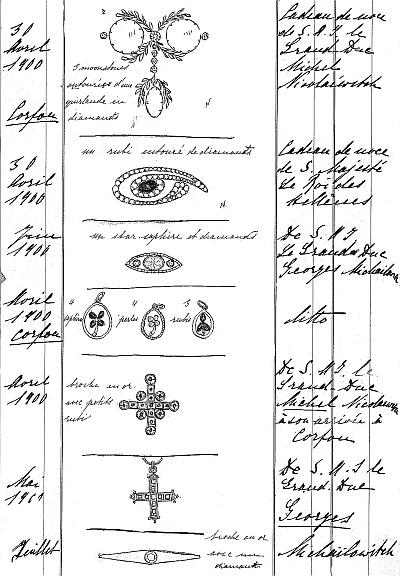 30
Avril
1900
Corfou
3 moonstones
entourées d'une
guirlande en
diamants
Cadeau de noce
de S. A. I. le
Grand Duc
Michel
Nicolaéwitch
30
Avril
1900
un rubi entouré de diamants
Cadeau de noce
de S. Majesté
Le Roi des
Hellènes
Juin
1900
un star saphire et diamants
De S. A. I
Le Grand Duc
Georges Michailowitch
Avril
1900
Corfou
4
saphire
4
perles
3
rubis
ditto
Avril
1900
broche en or
avec petits
rubi
De S. A. I. le
Grand Duc
Michel Nicolaéwitch
à son arrivée à
Corfou
Mai
1901
De S. A. I le
Grand Duc
Georges
Michailowitch
Juillet
broche en or
avec un
diamant